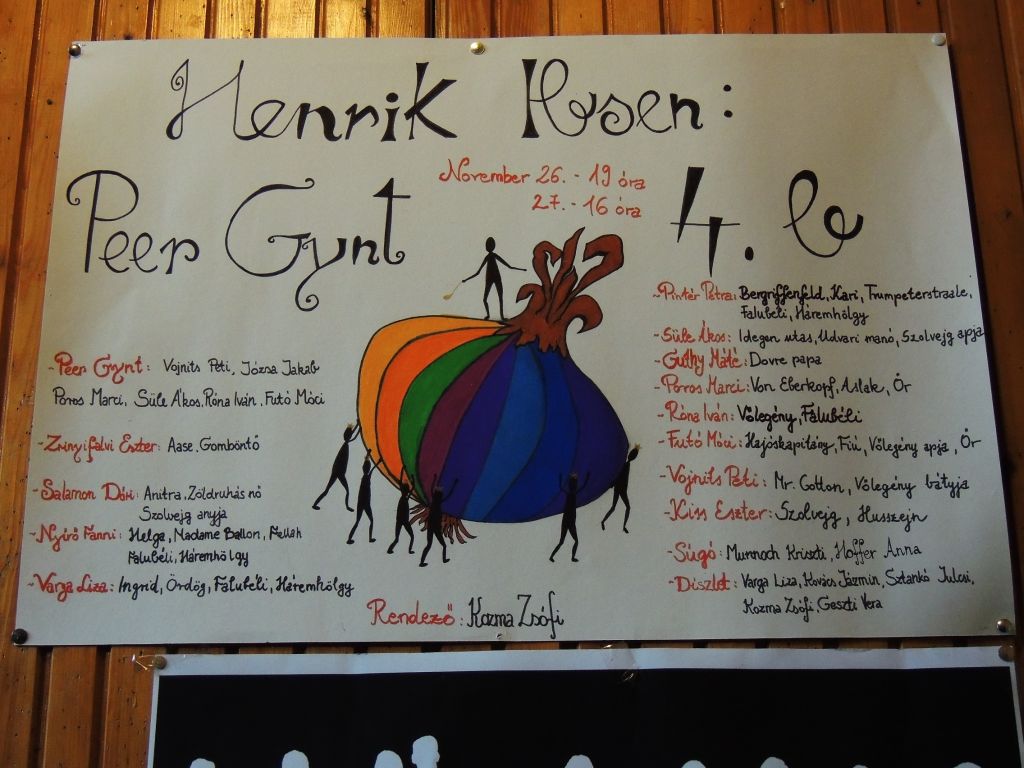 Henrik Ibsen:
Peer Gynt
November 26. - 19 óra
27. - 16 óra
4. b
-Peer Gynt: Vojnits Peti, Józsa Jakab
Poros Marci, Süle Ákos, Róna Iván, Futó Móci
-Zrinyifalvi Eszter: Aase, Gomböntő
-Salamon Dóri: Anitra, Zöldruhás nő
Szolvejg anyja
-Nyírő Fanni: Helga, Madame Ballon, Fellah
Falubéli, Háremhölgy
-Varga Liza: Ingrid, Ördög, Falubéli, Háremhölgy
Rendező: Kozma Zsófi
-Pintér Petra: Bergriffenfeld, Kari, Trumpeterstraale,
Falubéli, Háremhölgy
-Süle Ákos: Idegen utas, Udvari manó, Szolvejg apja
-Guthy Máté: Dovre papa
-Poros Marci: Von Eberkopf, Aslak, Őr
-Róna Iván: Vőlegény, Falubéli
-Futó Móci: Hajóskapitány, Fiú, Vőlegény apja, Őr
-Vojnits Peti: Mr. Cotton, Vőlegény bátyja
-Kiss Eszter: Szolvejg, Husszejn
-Súgó: Murnoch Kriszti, Hoffer Anna
-Díszlet: Varga Liza, Kovács Jázmin, Sztankó Julcsi,
Kozma Zsófi, Geszti Vera